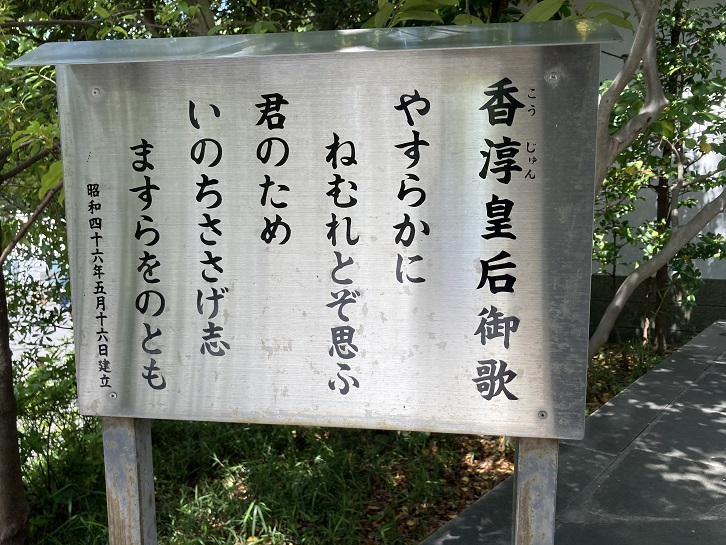 香淳皇后御歌
こうじゅん
やすらかに
ねむれとぞ思ふ
君のため
いのちささげ志
ますらをのとも
昭和四十六年五月十六日建立